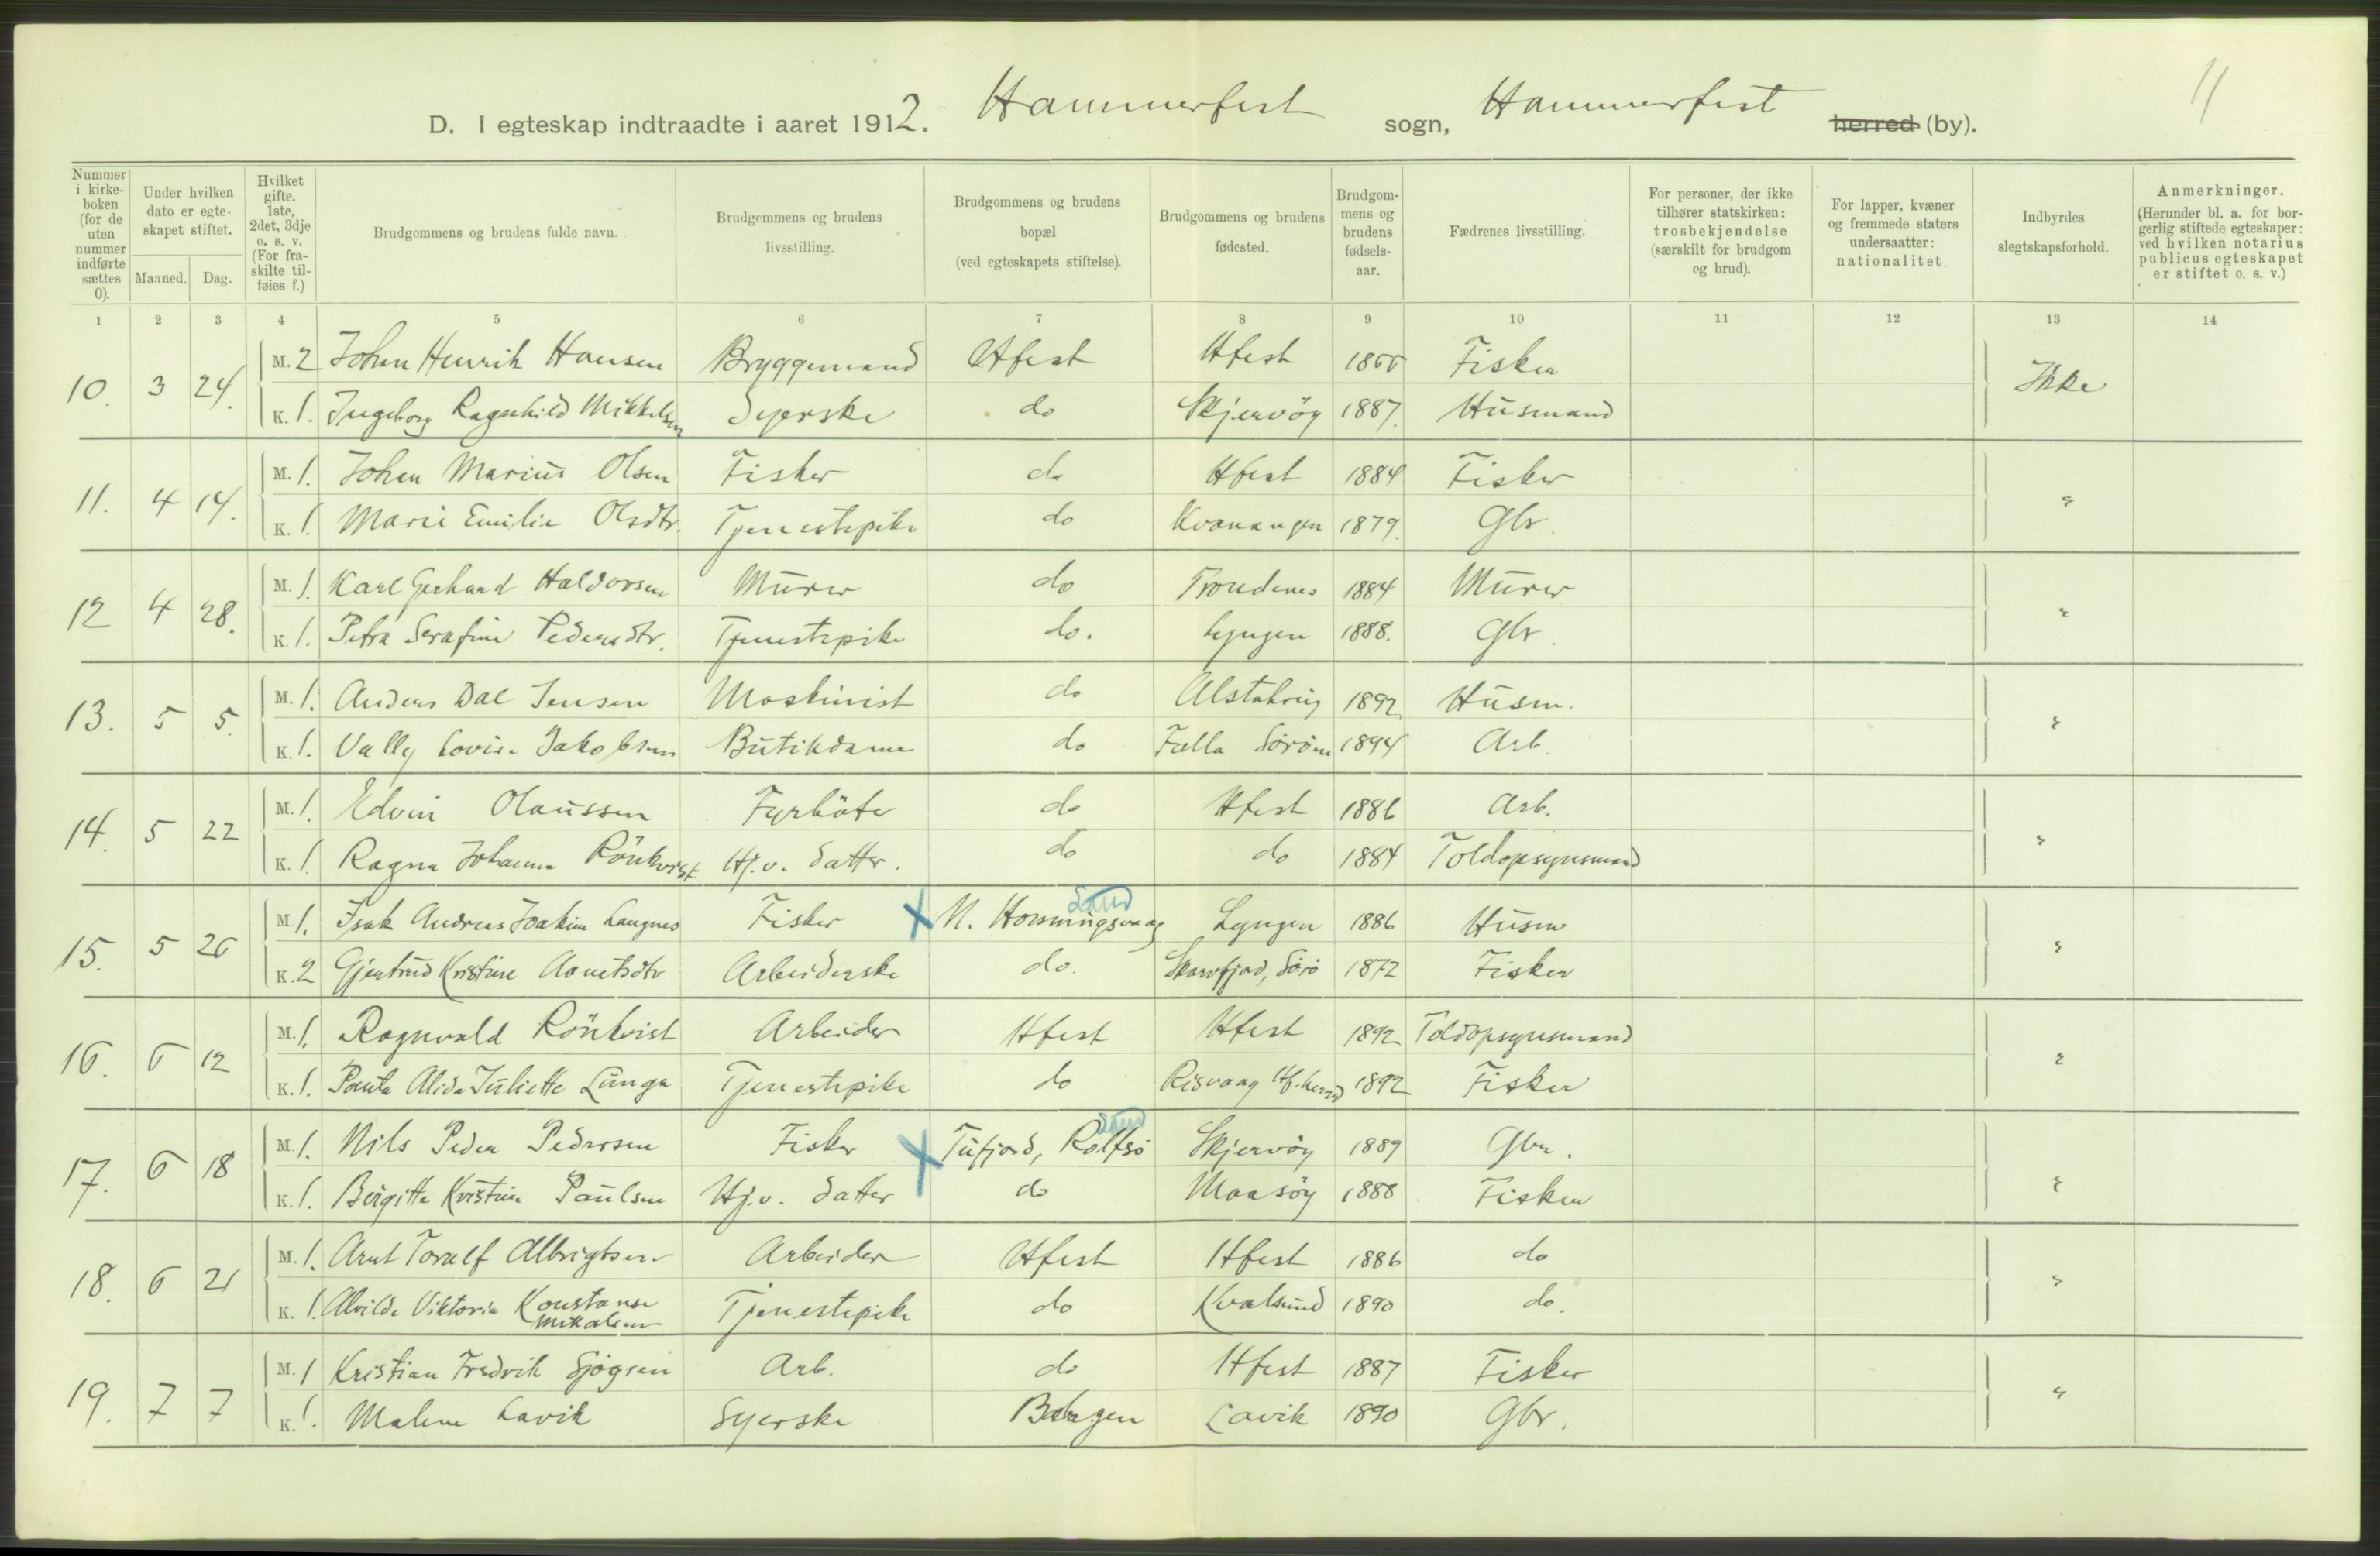 11
D. I egteskap indtraadte i aaret 1912. Hammerfest sogn, Hammerfest herred (by).
Nummer i kirke- boken (for de uten nummer indførte sættes 0).
Under hvilken dato er egte- skapet stiftet.
Maaned. Dag.
Hvilket gifte. 1ste, 2det, 3dje o. s. v. (For fra- skilte til- føies f.)
Brudgommens og brudens fulde navn.
Brudgommens og brudens livsstilling.
Brudgommens og brudens bopæl (ved egteskapets stiftelse).
Brudgommens og brudens fødested.
Brudgom- mens og brudens fødsels- aar.
Fædrenes livsstilling.
For personer, der ikke tilhører statskirken: trosbekjendelse (særskilt for brudgom og brud).
For lapper, kvæner og fremmede staters undersaatter: nationalitet.
Indbyrdes slegtskapsforhold.
Anmerkninger. (Herunder bl. a. for bor- gerlig stiftede egteskaper: ved hvilken notarius publicus egteskapet er stiftet o. s. v.)
1 2 3 4 5 6 7 8 9 10 11 12 13 14
10. 3 24. M. 2 Johan Henrik Hansen Bryggemand Hfest Hfest Fisker Ikke
K. 1. Ingeborg Ragnhild Mikkelsen Syerske do Skjervöy 1887. Husmand
11. 4 14. M. 1. Johan Marius Olsen Fisker do Hfest 1884 Fisker "
K. 1. Marie Emilie Olsdtr. Tjenestepike do Kvænangen 1879. Gbr.
12 4 28. M. 1. Karl Gerhard Haldorsen Murer do Trondenes 1884 Murer "
K. 1. Petra Serafine Pedersdtr. Tjenestepike do. Lyngen 1888. Gbr.
13. 5 5. M. 1. Anders Dal Jensen Maskinist do Alstahoug 1892 Husm. "
K. 1. Vally Lovise Jakobsen Butikdame do Falla Söröen 1894 Arb.
14. 5 22 M. 1. Edvin Olaussen Fyrböter do Hfest 1886 Arb. "
K. 1. Ragna Johanna Rönkvist Hj.v. datter. do do 1884 Toldopsynsmand
15. 5 26 M. 1. Isak Andreas Joakim Langnes Fisker X N. Honningsvaag Sund Lyngen 1886 Husm "
K. 2 Gjertrud Kristine Arnetsdtr Arbeiderske do. Skarvfjord, Sörö 1872 Fisker
16. 6 12 M. 1. Ragnvald Rönkvist Arbeider Hfest Hfest 1892 Toldopsynsmand "
K. 1. Paula Alida Juliette Lunga Tjenestepike do Risvaag Hf. herred 1892 Fisker
17. 6 18 M. 1. Nils Peder Pedersen Fisker X Tufjord, Rolfsö Sund Skjervöy 1889 Gbr. "
K. 1. Birgitte Kristine Paulsen Hj.v. datter do Maasöy 1888 Fisker
18. 6 21 M. 1. Arnt Toralf Albrigtsen Arbeider Hfest Hfest 1886 do "
K. 1. Alvilde Viktoria Konstanse Mikalsen Tjenestepike do Kvalsund 1890 do.
19. 7 7 M. 1 Kristian Fredrik Sjögren Arb. do Hfest 1887 Fisker "
K. 1. Malene Lavik Syerske Bergen Lavik 1890 Gbr.